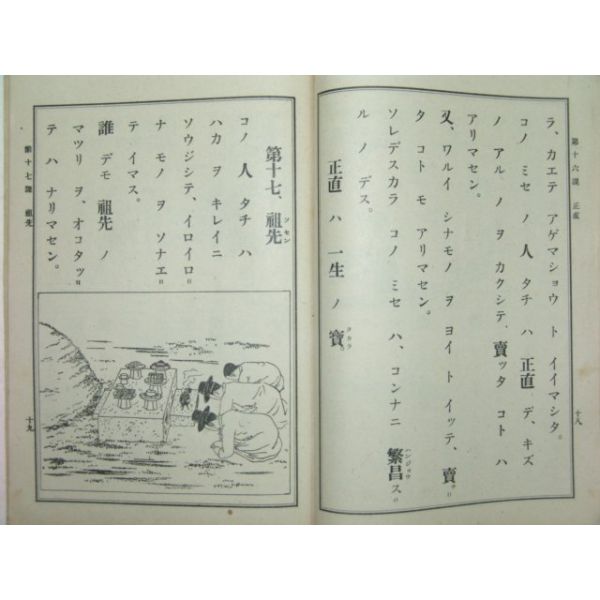 第十六課 正直
ラ、カエテ アゲマショウ ト イイマシタ。
コノ ミセ ノ 人 タチ ハ 正直 デ、キズ
ノ アル ノ ヲ カクシテ、賣ッタ コト ハ
アリマセン。
又、ワルイ シナモノ ヲ ヨイ ト イッテ、賣ッ
タ コト モ アリマセン。
ソレデスカラ コノ ミセ ハ、コンナニ 繁昌 ス
ハンジョウ
ル ノ デス。
正直 ハ 一生 ノ 寶。
タカラ
十八
第十七、祖先
ソセン
コノ 人 タチ ハ
ハカ ヲ キレイニ
ソウジシテ、イロイロ
ナ モノ ヲ ソナエ
テ イマス。
誰 デモ 祖先 ノ
マツリ ヲ、オコタッ
テ ハ ナリマセン。
第十七課 祖先
十九